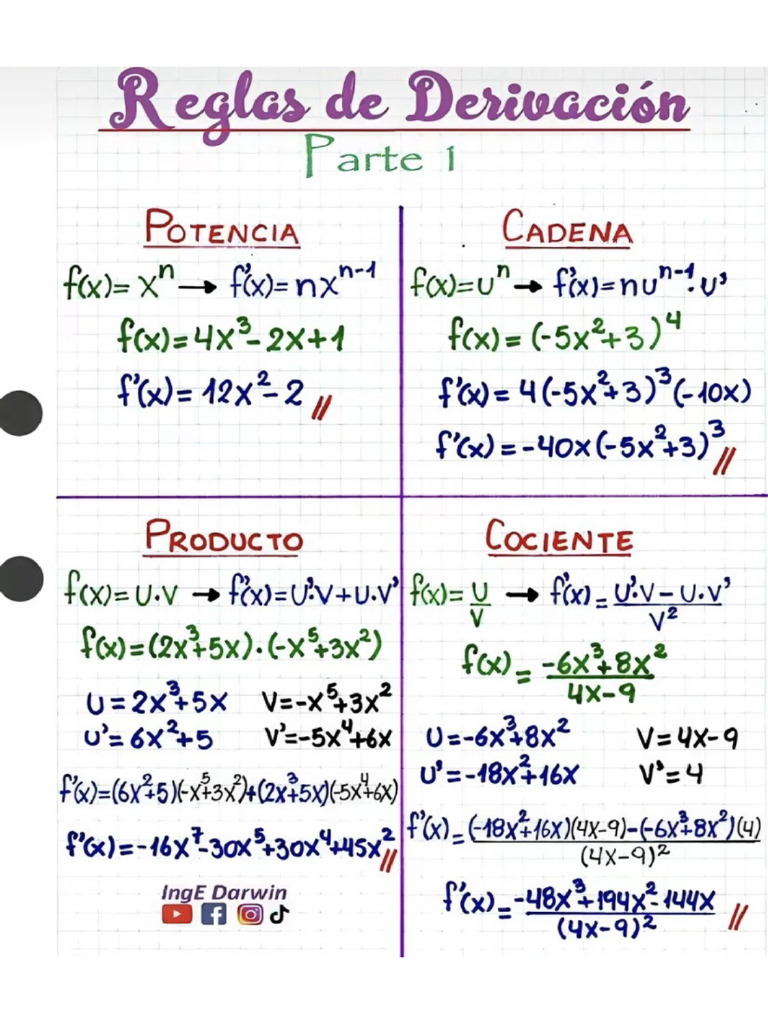 Reglas de Derivación
Parte 1
POTENCIA
f(x)= xⁿ → f'(x)= nxⁿ⁻¹
f(x)= 4x³-2x+1
f'(x)= 12x²-2 //
CADENA
f(x)=uⁿ → f'(x)=nuⁿ⁻¹·u'
f(x)= (-5x²+3)⁴
f'(x)= 4(-5x²+3)³(-10x)
f'(x)=-40x(-5x²+3)³ //
PRODUCTO
f(x)= u·v → f'(x)=u'·v+u·v'
f(x)=(2x³+5x)·(-x⁵+3x²)
u=2x³+5x v=-x⁵+3x²
u'=6x²+5 v'=-5x⁴+6x
f'(x)=(6x²+5)(-x⁵+3x²)+(2x³+5x)(-5x⁴+6x)
f'(x)=-16x⁷-30x⁵+30x⁴+45x² //
IngE Darwin
COCIENTE
f(x)= u/v → f'(x)= (u'·v-u·v')/v²
f(x)= (-6x³+8x²)/(4x-9)
u=-6x³+8x² v=4x-9
u'=-18x²+16x v'=4
f'(x)= ((-18x²+16x)(4x-9)-(-6x³+8x²)(4))/(4x-9)²
f'(x)= (-48x³+194x²-144x)/(4x-9)² //